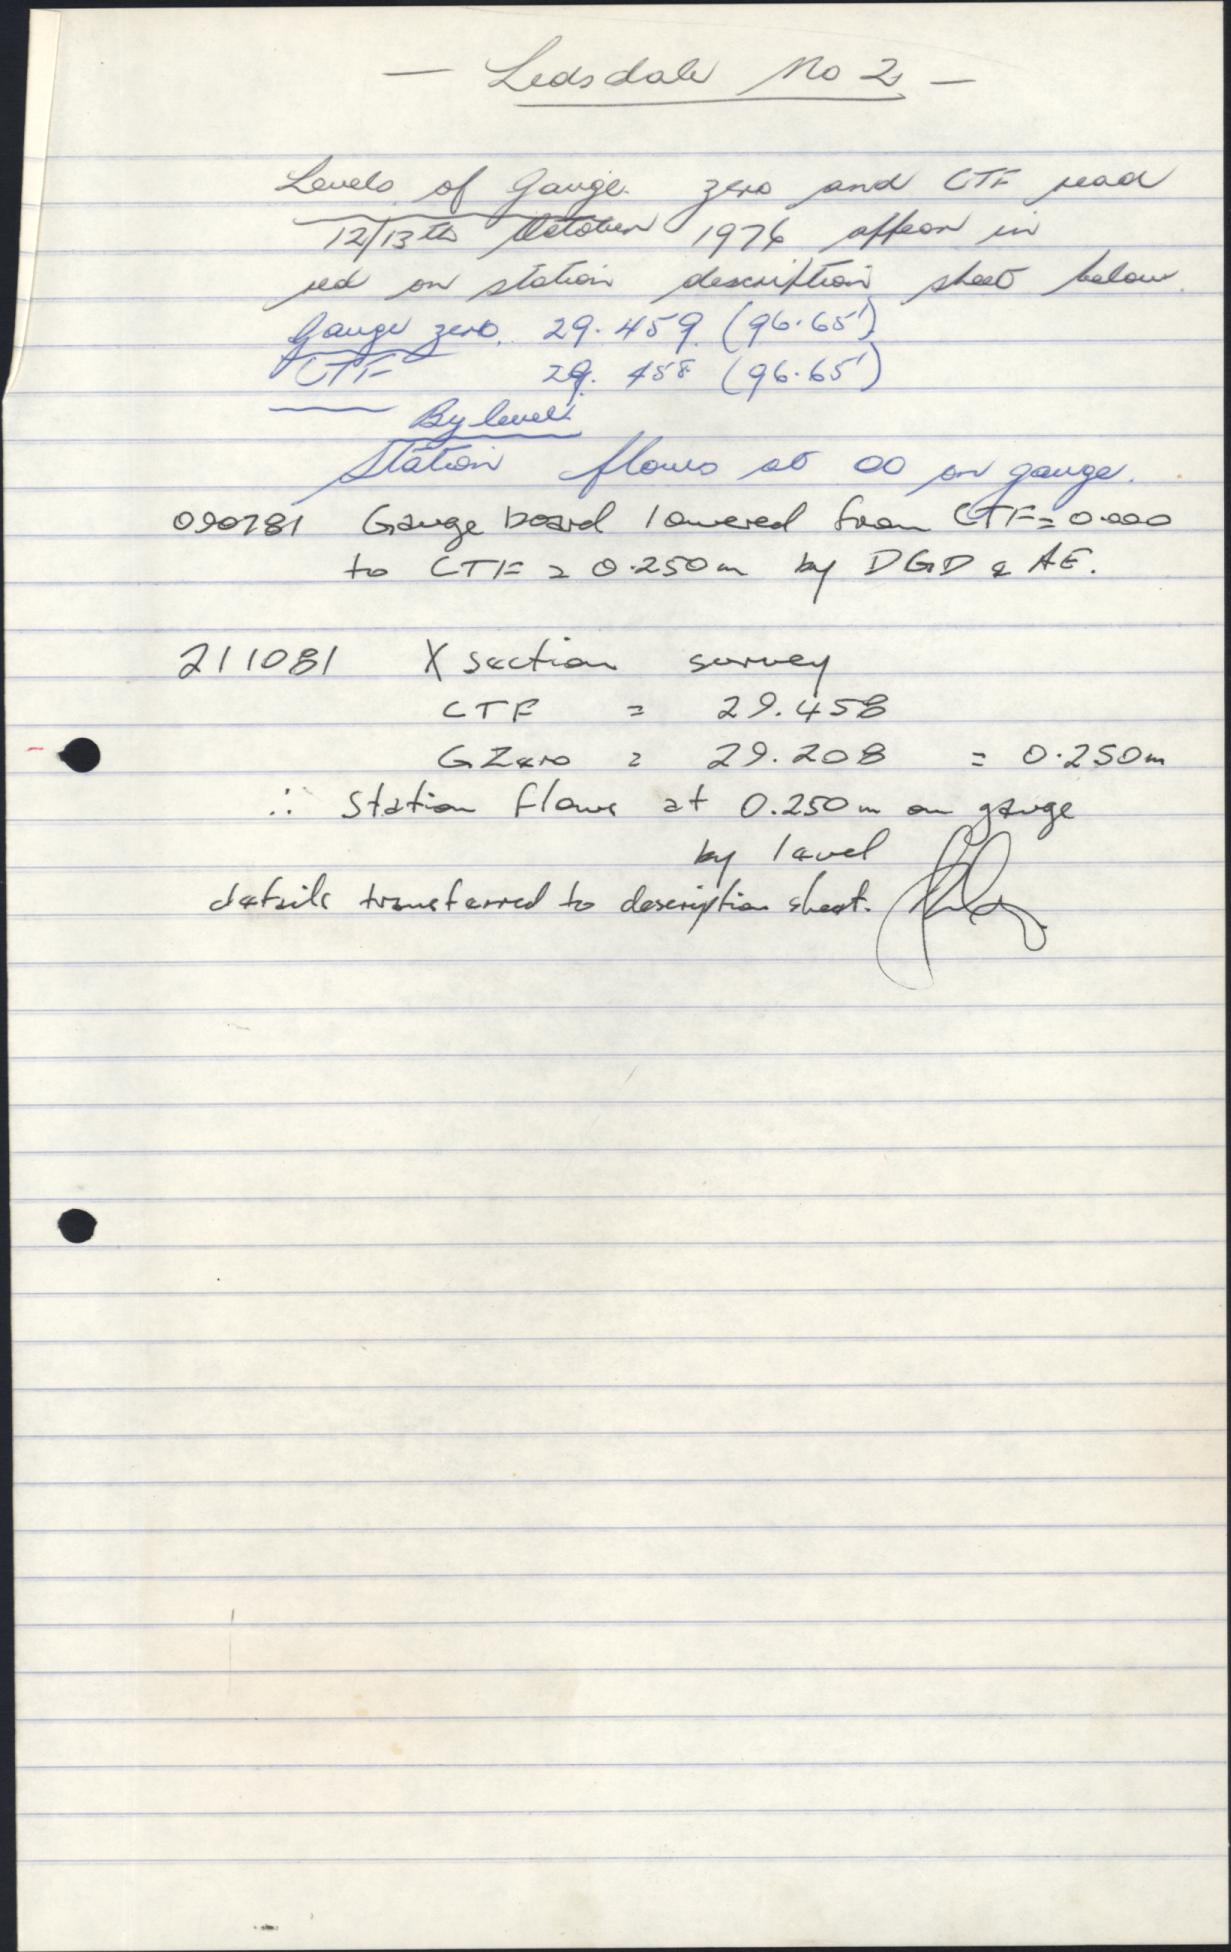 — Ledsdale No 2 —
Levels of Gauge zero and CTF read
12/13th October 1976 appear in
red on station description sheet below.
Gauge zero. 29.459 (96.65')
CTF 29.458 (96.65')
By level
Station flows at 00 on gauge.
090781 Gauge board lowered from CTF = 0.000
to CTF = 0.250m by DGD & AE.
211081 X section survey
CTF = 29.458
GZero = 29.208 = 0.250m
∴ Station flows at 0.250m on gauge
by level
details transferred to description sheet.